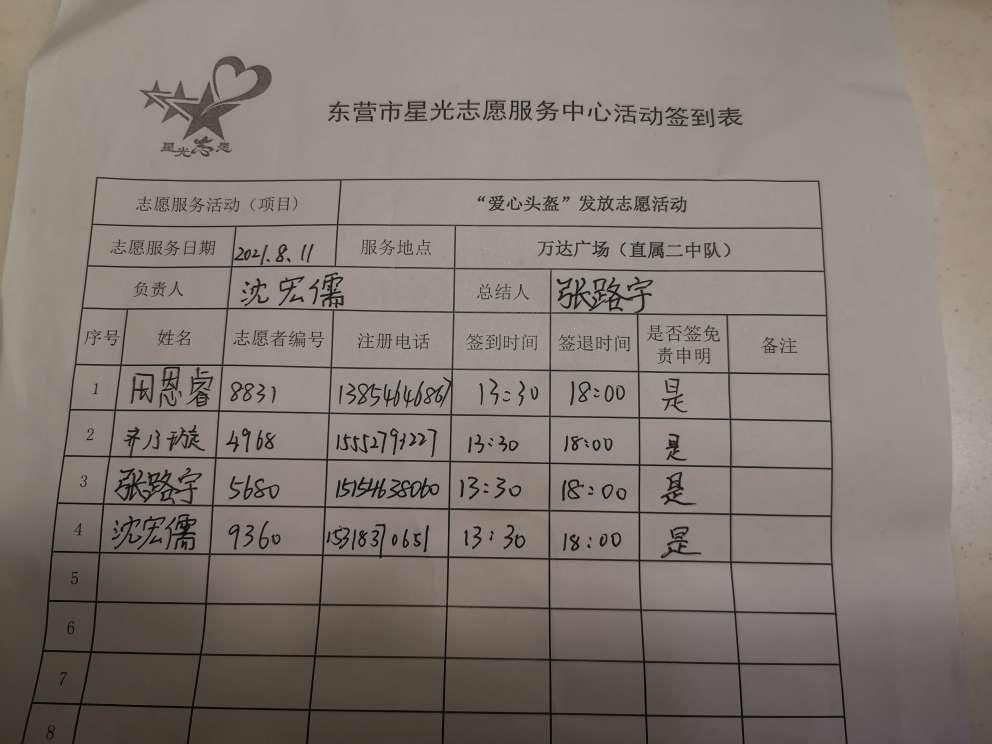 东营市星光志愿服务中心活动签到表
星光志愿
志愿服务活动（项目） “爱心头盔”发放志愿活动
志愿服务日期 2021.8.11 服务地点 万达广场（直属二中队）
负责人 沈宏儒 总结人 张路宇
序号 姓名 志愿者编号 注册电话 签到时间 签退时间 是否签免责申明 备注
1 田恩睿 8831 13854646867 13:30 18:00 是
2 4968 15552793227 13:30 18:00 是
3 张路宇 5680 15154638060 13:30 18:00 是
4 沈宏儒 9360 15318370651 13:30 18:00 是
5
6
7
8